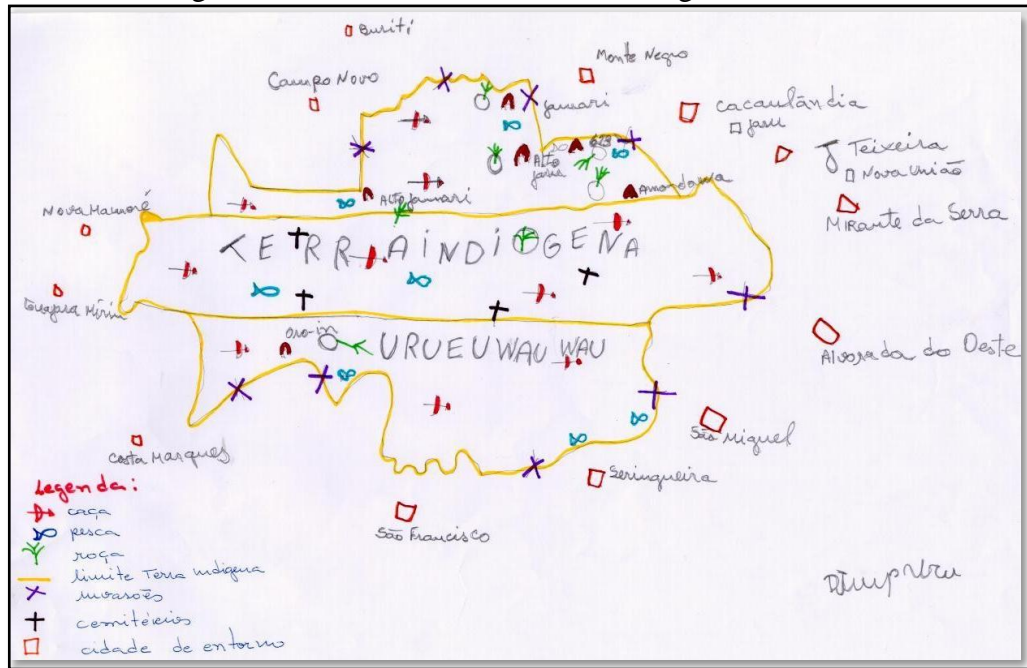 Buriti
Monte Negro
Campo Novo
Cacaulândia
Jaru
Jamari
Teixeira
Nova União
623
Alto Jaru
Amondawa
Alto Jamari
Mirante da Serra
Nova Mamoré
TERRA INDIOGENA
Guajara Mirim
Oro-in
URUEUWAU WAU
Alvorada do Oeste
São Miguel
Costa Marques
Seringueira
São Francisco
Legenda:
caça
pesca
roça
limite Terra indigena
invasões
cemitérios
cidade de entorno